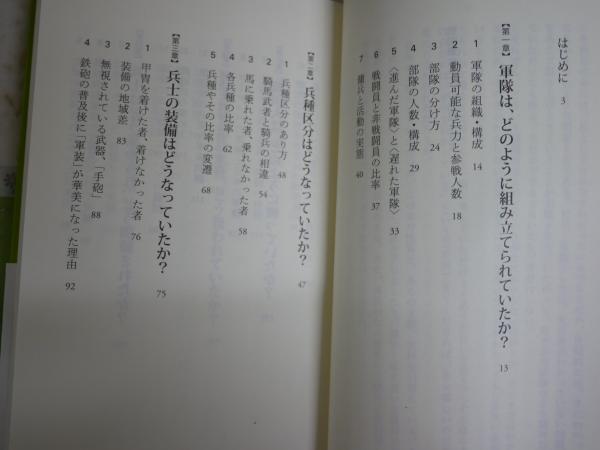 はじめに 3
【第一章】軍隊は、どのように組み立てられていたか? 13
1 軍隊の組織・構成 14
2 動員可能な兵力と参戦人数 18
3 部隊の分け方 24
4 部隊の人数・構成 29
5 〈進んだ軍隊〉と〈遅れた軍隊〉 33
6 戦闘員と非戦闘員の比率 37
7 傭兵と活動の実態 40
【第二章】兵種区分はどうなっていたか? 47
1 兵種区分のあり方 48
2 騎馬武者と騎兵の相違 54
3 馬に乗れた者、乗れなかった者 58
4 各兵種の比率 62
5 兵種やその比率の変遷 68
【第三章】兵士の装備はどうなっていたか? 75
1 甲冑を着けた者、着けなかった者 76
2 装備の地域差 83
3 無視されている武器、「手砲」 88
4 鉄砲の普及後に「軍装」が華美になった理由 92